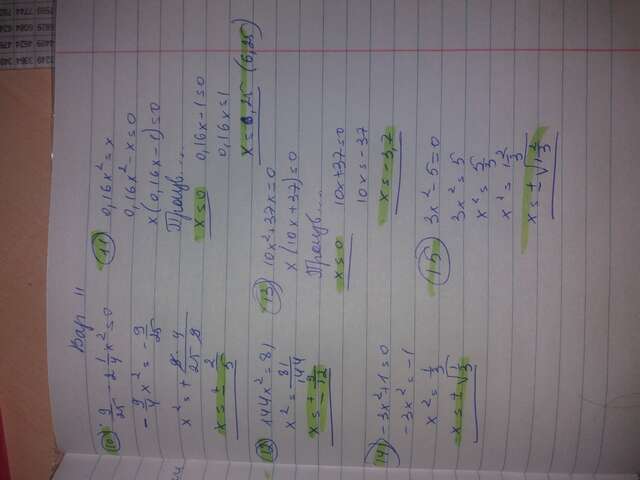 Вар 11
10) 9/25 - 2 1/4 x² = 0
- 9/4 x² = - 9/25
x² = + 9·4/25·9
x = ± 2/5
11) 0,16x² = x
0,16x² - x = 0
x(0,16x - 1) = 0
Произв....
x = 0 0,16x - 1 = 0
0,16x = 1
x = 6,25 (6,25)
12) 144x² = 81
x² = 81/144
x = ± 9/12
13) 10x² + 37x = 0
x(10x + 37) = 0
Произв....
x = 0 10x + 37 = 0
10x = -37
x = -3,7
14) -3x² + 1 = 0
-3x² = -1
x² = 1/3
x = ± √1/3
15) 3x² - 5 = 0
3x² = 5
x² = 5/3
x² = 1 2/3
x = ± √1 2/3